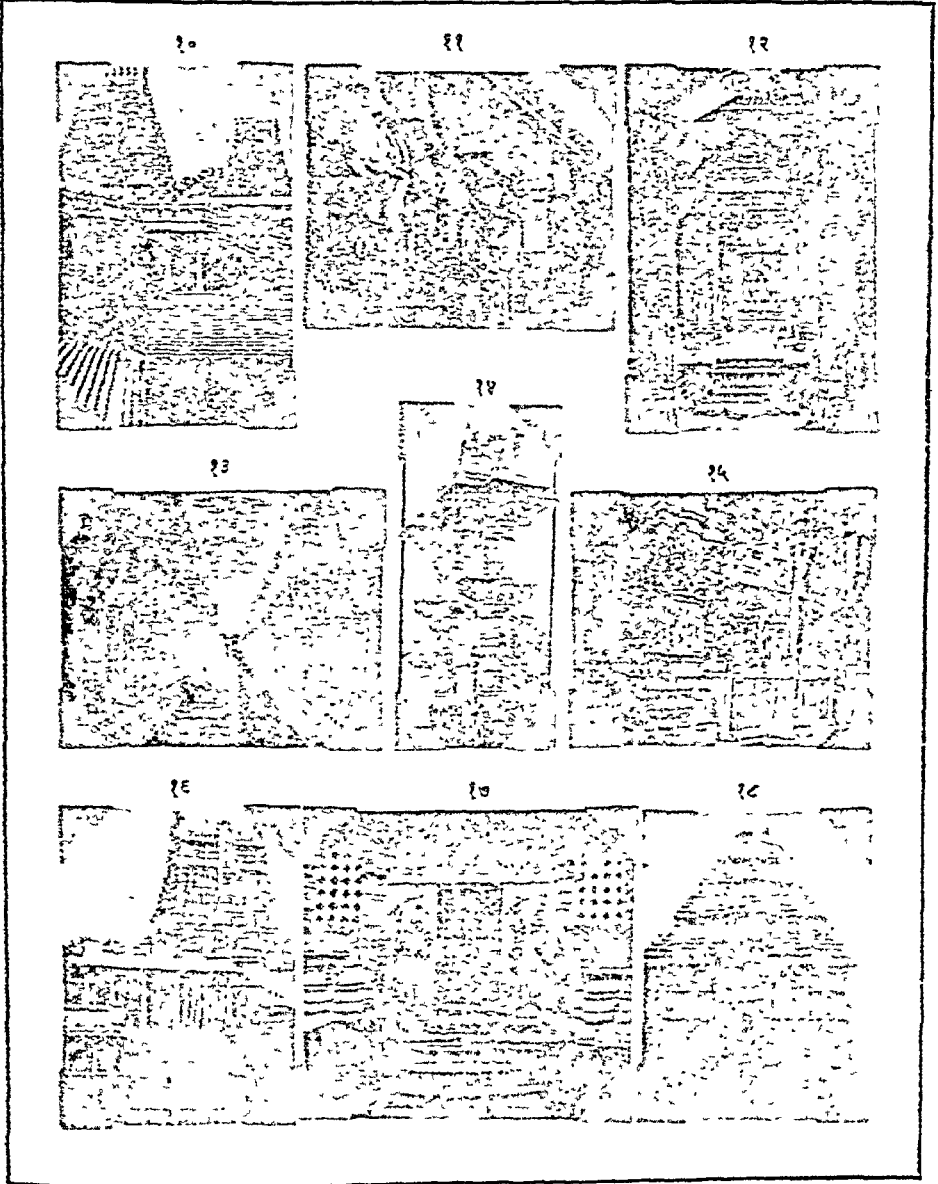 १० ११ १२
१४
१३ १५
१६ १७ १८